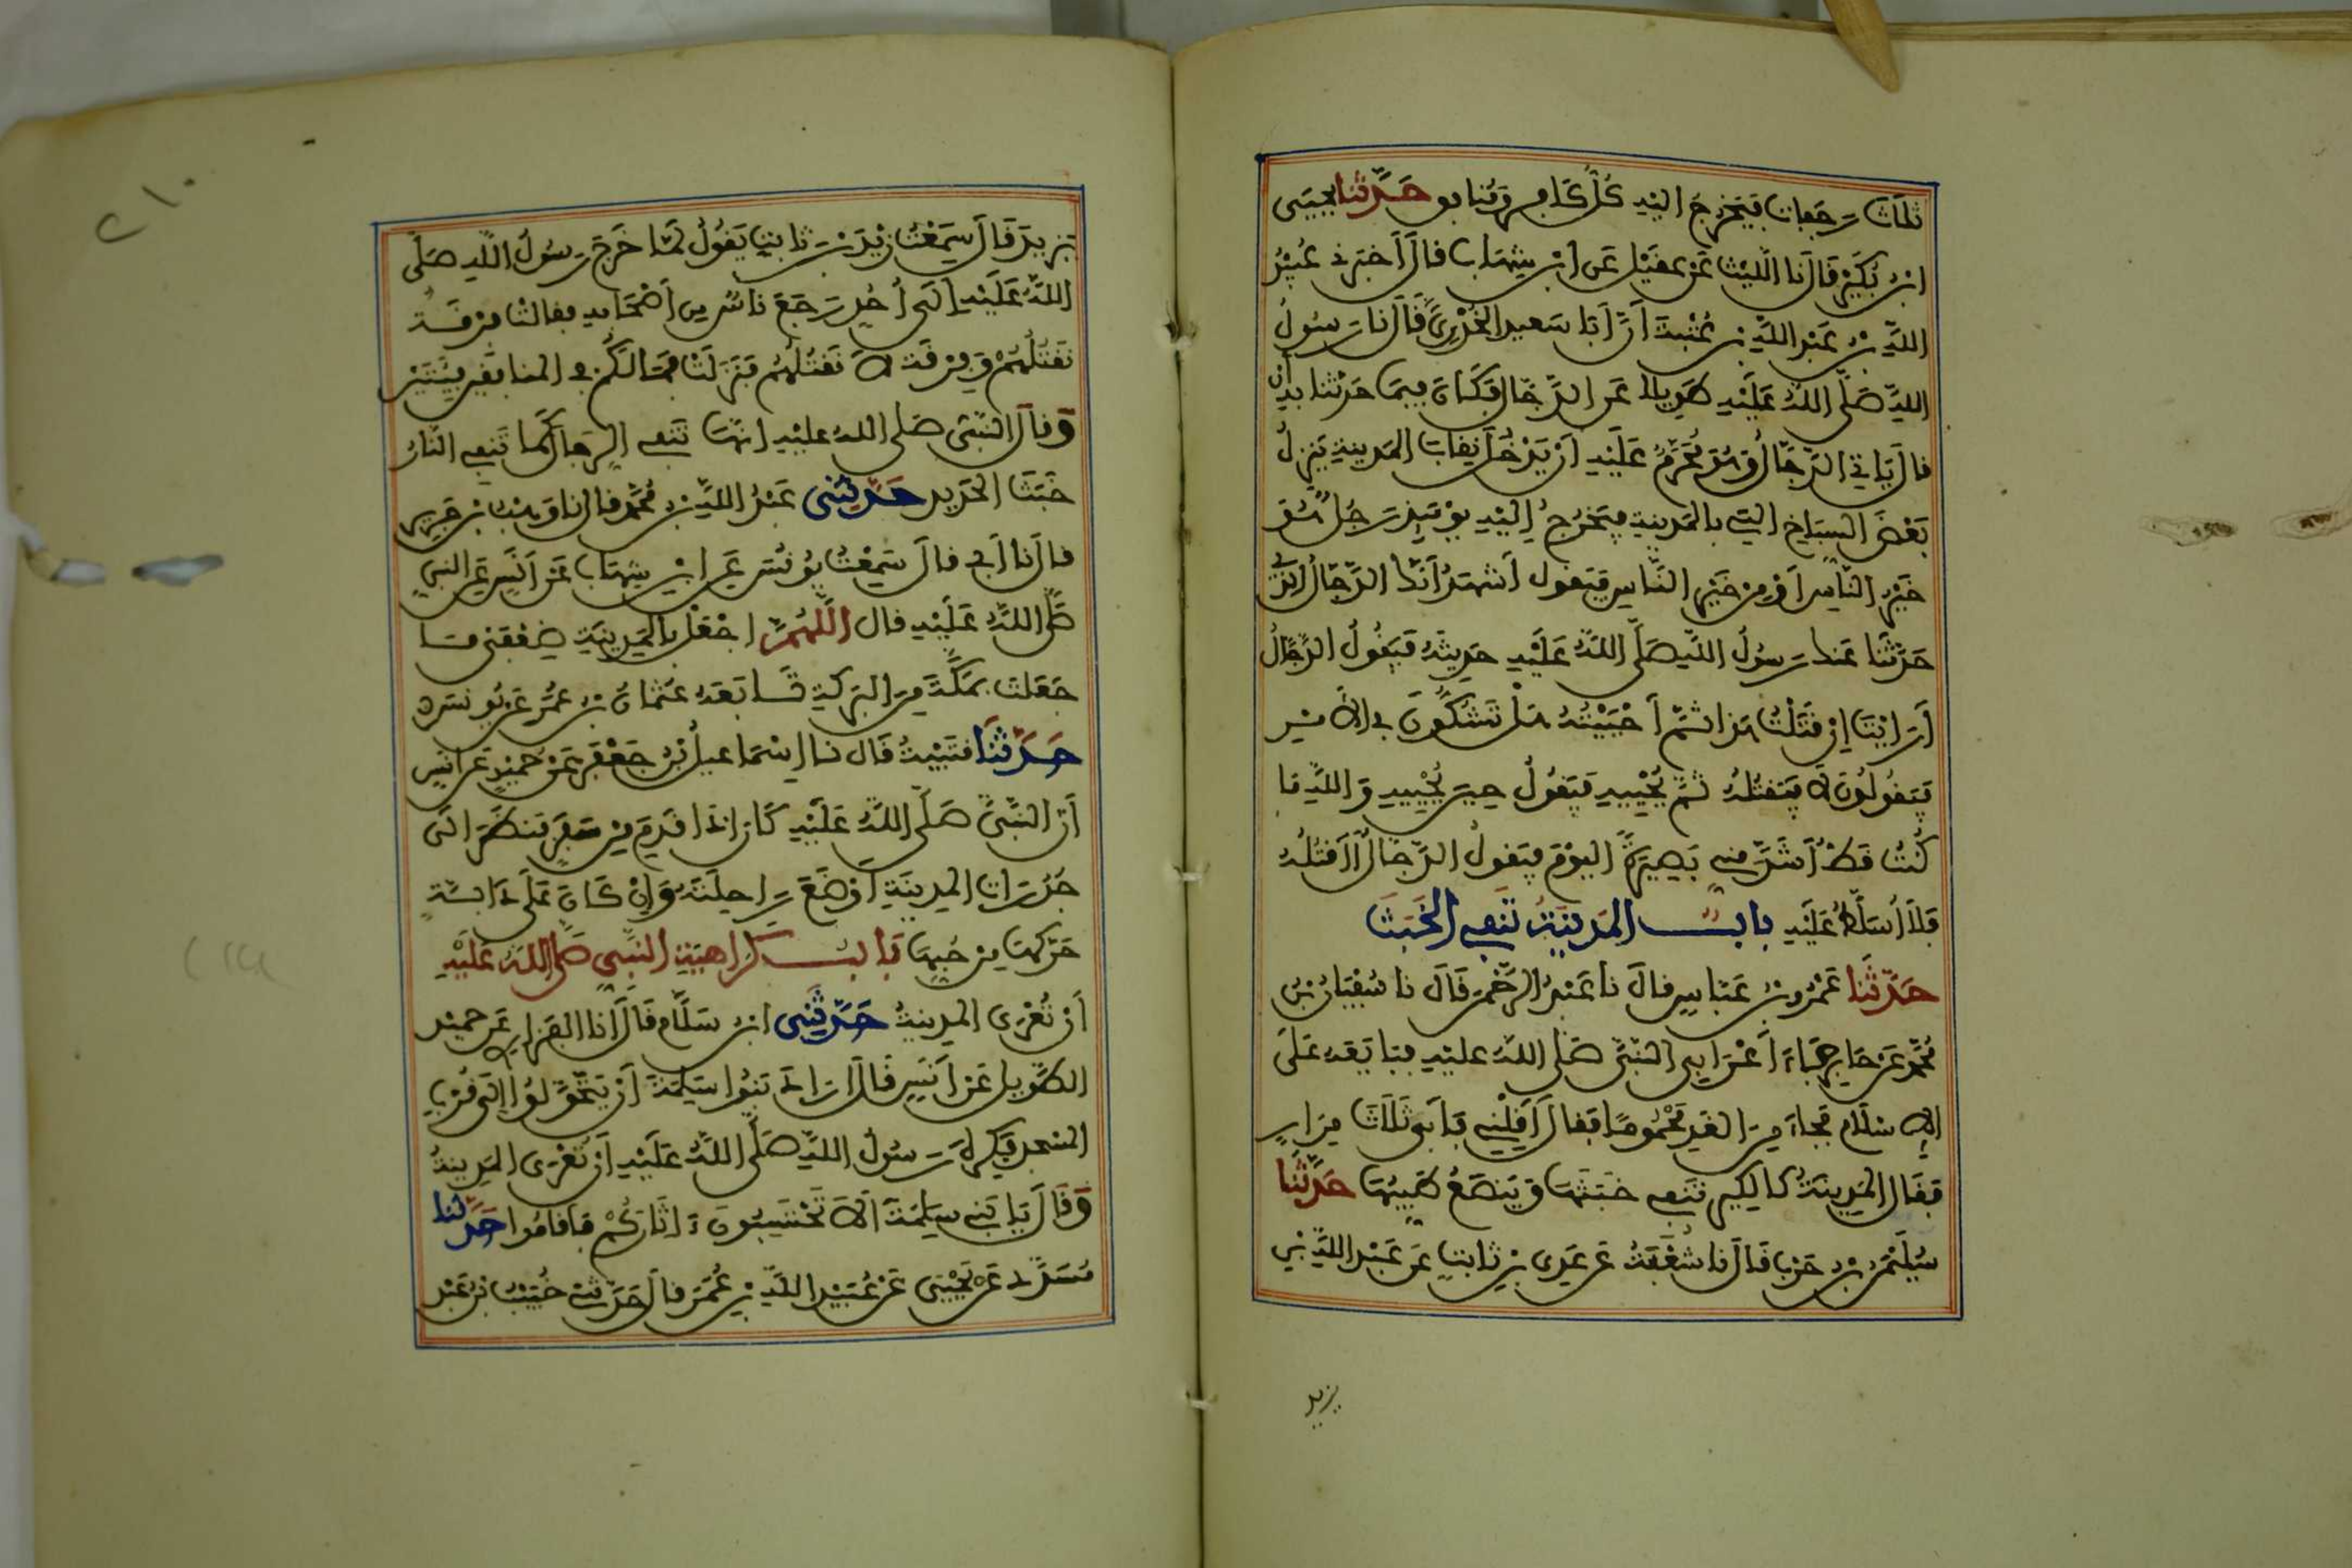 ثلاث رجفات فيخرج اليه كل كافر ومنافق حدثنا يحيى
ابن بكير قال نا الليث عن عقيل عن ابن شهاب قال أخبرني عبيد
الله بن عبد الله بن عتبة أن أبا سعيد الخدري قال نا رسول
الله صلى الله عليه طويلا عن الدجال فكان فيما حدثنا به أن
قال ياتي الدجال وهو محرم عليه أن يدخل نقاب المدينة ينزل
بعض السباخ التي بالمدينة فيخرج إليه يومئذ رجل هو
خير الناس أو من خير الناس فيقول أشهد أنك الدجال الذي
حدثنا عنك رسول الله صلى الله عليه حديثه فيقول الدجال
أرايت إن قتلت هذا ثم أحييته هل تشكون في الامر
فيقولون لا فيقتله ثم يحييه فيقول حين يحييه والله ما
كنت قط أشد مني بصيرة اليوم فيقول الدجال أقتله
فلا أسلط عليه باب المدينة تنفي الخبث
حدثنا عمرو بن عباس قال نا عبد الرحمن قال نا سفيان بن
محمد عن جابر جاء أعرابي النبي صلى الله عليه فبايعه على
الاسلام فجاء من الغد محموما فقال أقلني فأبى ثلاث مرار
فقال المدينة كالكير تنفي خبثها وينصع طيبها حدثنا
سليمن بن حرب قال نا شعبة عن عدي بن ثابت عن عبد الله بن
يزيد
٢١٠
يزيد قال سمعت زيد بن ثابت يقول لما خرج رسول الله صلى
الله عليه إلى أحد رجع ناس من أصحابه فقالت فرقة
نقتلهم وفرقة لا نقتلهم فنزلت فما لكم في المنافقين فئتين
وقال النبي صلى الله عليه إنها تنفي الرجال كما تنفي النار
خبث الحديد حدثني عبد الله بن محمد قال نا وهب بن جرير
قال نا أبي قال سمعت يونس عن ابن شهاب عن أنس عن النبي
صلى الله عليه قال اللهم اجعل بالمدينة ضعفي ما
جعلت بمكة من البركة تابعه عثمان بن عمر عن يونس
حدثنا قتيبة قال نا إسماعيل بن جعفر عن حميد عن أنس
أن النبي صلى الله عليه كان إذا قدم من سفر فنظر إلى
جدرات المدينة أوضع راحلته وإن كان على دابة
حركها من حبها باب كراهية النبي صلى الله عليه
أن تعرى المدينة حدثني ابن سلام قال أنا الفزاري عن حميد
الطويل عن أنس قال أراد بنوا سلمة أن يتحولوا إلى قرب
المسجد فكره رسول الله صلى الله عليه أن تعرى المدينة
وقال يا بني سلمة ألا تحتسبون ءاثاركم فأقاموا حدثنا
مسدد عن يحيى عن عبيد الله بن عمر قال حدثني خبيب بن عبد